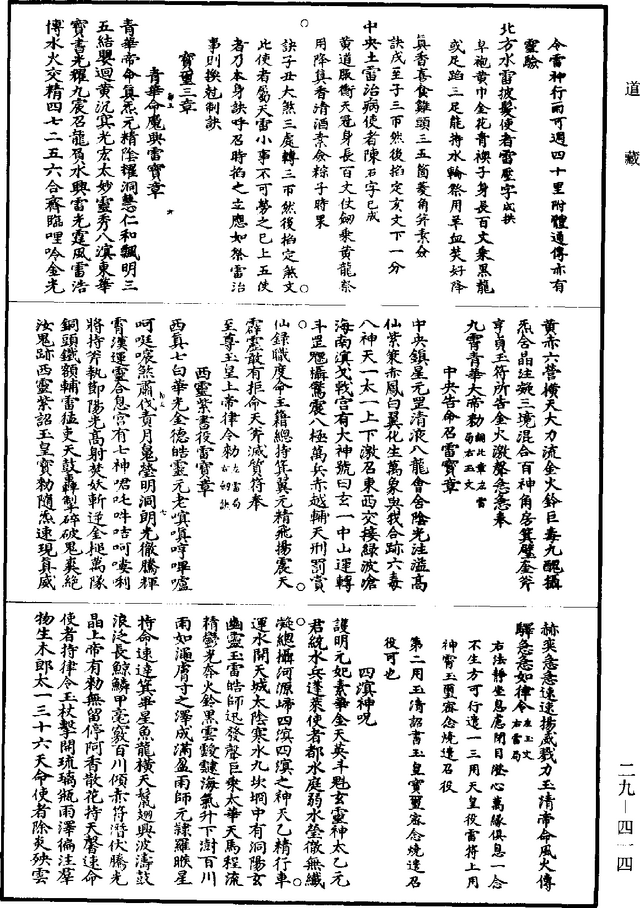 道藏
令雷神行雨可過四十里附體通傳亦有
靈驗
北方水雷披髮使者雷壓字成拱
皁袍黃巾金花青襖子身長百丈乘黑龍
或足踏三足龍持水輪祭用羊血煑好降
真香喜食雞頭三五箇菱角笋素僉
訣戌至子三帀然後掐定亥文下一分
中央土雷治病使者陳石字巳成
黃道服衝天冠身長百丈仗劒乘黃龍祭
用降真香清酒素僉粽子時果
訣子丑大煞三處轉三帀然後掐定煞文
此使者屬天雷小事不可勞之巳上五使
者乃本身訣呼召時掐之立應如祭雷治
事則換尅制訣
寶璽三章
青華命魔興雷寶章
青華帝命真炁元精陰耀洞慧仁和飄明三
五結嬰迴黃沉寘光宏太妙靈秀八溟東華
寶書光耀九宸召龍賓水興雷光霆風雷浩
傳水火交精四七二五六合齊臨哩唅金光
黃赤六營橫天大力流金火鈴巨毒九醜攝
炁含晶注凝三境混合百神角房箕壁奎斧
亨貞玉符所告金火激磬急急奉
九霄青華大帝勑
中央告命召雷寶章
中央鎮星元罡清液八龍會含陰光注溢高
仙紫策赤鳳白翼化生萬象與我合跡六毒
八神天一太一上下激召東西交接綠波嗆
海南溟戈戟宫有大神號曰玄一中山運轉
斗罡魓攝驚震八極萬兵赤越輔天刑罰賞
仙録職度命玉籍總持年冀元精飛揚震天
霹靂敢有拒命天斧滅質符奉
至尊玉皇上帝律令勑
西靈紫書役雷寶章
西真七白華光金德皓靈元老嗔嗔哼嗶嚧
呵哐唳煞肅伐責月魄瑩明洞朗光徹騰輝
霄漢運靈合息宫有七神嗯吒吽呿呵嘍利
將持斧執節陽光高射焚妖斬逆金搥萬隊
銅頭鐵額輔雷猛吏天鼓轟掣碎破鬼裘絶
汝鬼跡西靈紫詔玉皇寶勑隨炁速現真威
赫奕急急速速揚威戮力玉清帝命風火傳
驛急急如律令
右法靜坐息慮閉目澄心萬緣俱息一念
不生方可行造一三用天皇役雷將上用
神霄玉璽密念燒造召役
第二用玉清詔書玉皇寶璽密念燒造召
役可也
四溟神呪
護明元妃素華金天英斗魁玄靈神太乙元
君統水兵蓬萊使者都水庭弱水瑩徹無纖
凝總攝河源崎四溟四溟之神天乙精行車
運水開天城太陰寒水九坎垌中有洞陽玄
幽靈玉雷皓師迅發聲巨乘太華天馬程流
精鬱光奔火鈴黑雲靉靆海氣升下澍百川
雨如湎膚寸之澤成滿盈雨師元隷羅睺星
持命速達箕畢星魚龍橫天鬣翅興波濤鼓
浪泛長鯨鱗甲毫毅百川傾赤符潛伏騰光
晶上帝有勑無留停阿香散花持天罄速命
使者持律令玉杖擊開琉璃瓶雨澤徧注羣
物生木郎太一三十六天命使者除炎殃雲
二九–四一四